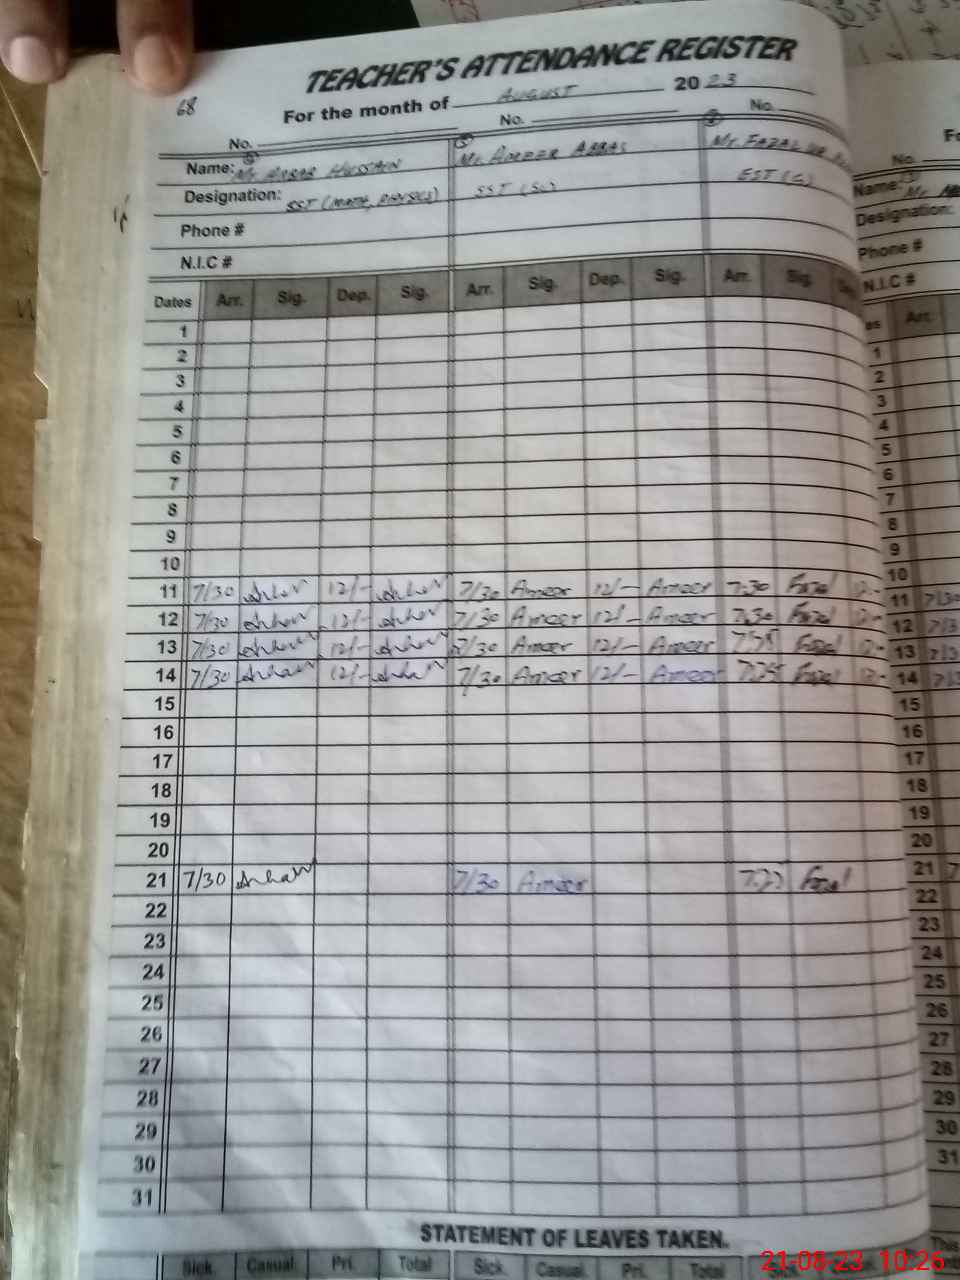 TEACHER'S ATTENDANCE REGISTER
68
For the month of AUGUST 2023
No. No. No.
Name: Mr Hussain Mr. Ameer Abbas Mr. Fazal ur
Designation: SST (Math, Physics) SST (Sc) EST (G)
Phone #
N.I.C #
Dates Arr. Sig. Dep. Sig. Arr. Sig. Dep. Sig. Arr. Sig.
1
2
3
4
5
6
7
8
9
10
11 7/30 12/- 7/30 Ameer 12/- Ameer 7:30 Fazal
12 7/30 12/- 7/30 Ameer 12/- Ameer 7:30 Fazal
13 7/30 12/- 7/30 Ameer 12/- Ameer Fazal
14 7/30 12/- 7/30 Ameer 12/- Ameer 7:25 Fazal
15
16
17
18
19
20
21 7/30 7/30 Ameer Fazal
22
23
24
25
26
27
28
29
30
31
STATEMENT OF LEAVES TAKEN.
Sick Casual Pri. Total Sick Casual Pri. Total
No.
Name: Mr
Designation:
Phone #
N.I.C #
Arr.
1
2
3
4
5
6
7
8
9
10
11
12
13
14
15
16
17
18
19
20
21
22
23
24
25
26
27
28
29
30
31
This
21-08-23 10:26